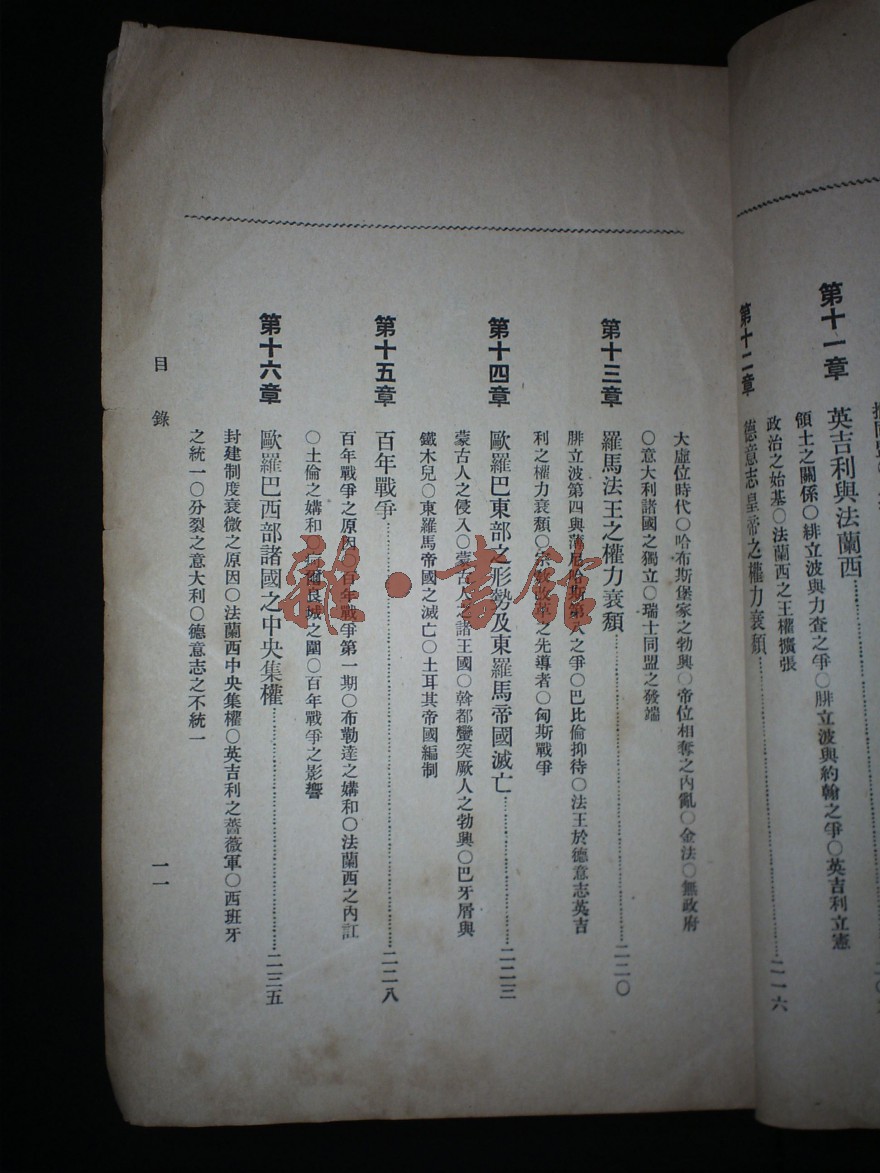 第十一章　英吉利與法蘭西
領土之關係○緋立波與力查之爭○腓立波與約翰之爭○英吉利立憲
政治之始基○法蘭西之王權擴張
第十二章　德意志皇帝之權力衰頹……二一六
大虛位時代○哈布斯堡家之勃興○帝位相奪之內亂○金法○無政府
○意大利諸國之獨立○瑞士同盟之發端
第十三章　羅馬法王之權力衰頹……二二〇
腓立波第四與薄尼哈斯第八之爭○巴比倫抑待○法王於德意志英吉
利之權力衰頹○宗教改革之先導者○匈斯戰爭
第十四章　歐羅巴東部之形勢及東羅馬帝國滅亡……二二三
蒙古人之侵入○蒙古人之諸王國○斡都蠻突厥人之勃興○巴牙屑與
鐵木兒○東羅馬帝國之滅亡○土耳其帝國編制
第十五章　百年戰爭……二二八
百年戰爭之原因○百年戰爭第一期○布勒達之媾和○法蘭西之內訌
○土倫之媾和○阿爾良城之圍○百年戰爭之影響
第十六章　歐羅巴西部諸國之中央集權……二三五
封建制度衰微之原因○法蘭西中央集權○英吉利之薔薇軍○西班牙
之統一○分裂之意大利○德意志之不統一
目錄
一一
雜·書館